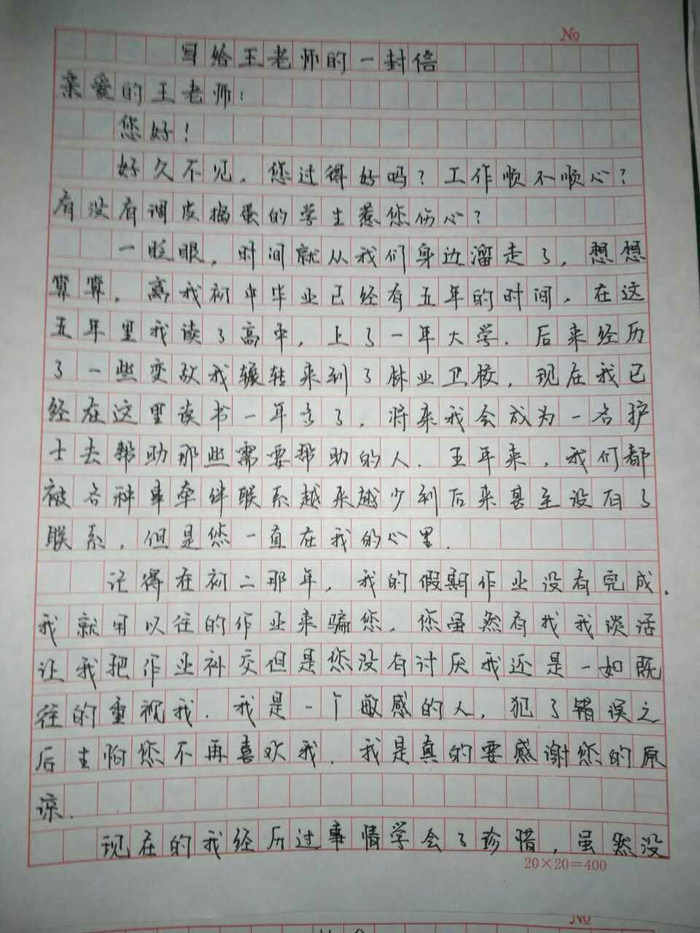 No
写给王老师的一封信
亲爱的王老师：
您好！
好久不见，您过得好吗？工作顺不顺心？
有没有调皮捣蛋的学生惹您伤心？
一眨眼，时间就从我们身边溜走了，想想
算算，离我初中毕业已经有五年的时间，在这
五年里我读了高中，上了一年大学．后来经历
了一些变故我辗转来到了林业卫校，现在我已
经在这里读书一年多了，将来我会成为一名护
士去帮助那些需要帮助的人．五年来，我们都
被各种事牵绊联系越来越少到后来甚至没有了
联系，但是您一直在我的心里．
记得在初二那年，我的假期作业没有完成．
我就用以往的作业来骗您．您虽然有找我谈话
让我把作业补交但是您没有讨厌我还是一如既
往的重视我．我是一个敏感的人，犯了错误之
后生怕您不再喜欢我．我是真的要感谢您的原
谅．
现在的我经历过事情学会了珍惜，虽然没
20×20=400
No